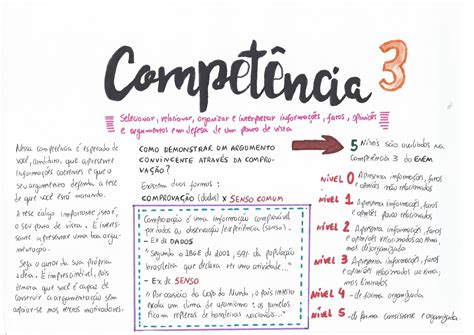 Competência 3
Selecionar, relacionar, organizar e interpretar informações, fatos, opiniões
e argumentos em defesa de um ponto de vista
Nessa competência é esperado de
você, candidato, que apresente
informações coerentes e que o
seu argumento defenda a tese
de que você está tratando.
A tese é algo importante, pois é
o seu ponto de vista. É interes-
sante apresentar uma boa argu-
mentação.
Seja o autor da sua própria
ideia. É imprescindível, pois
mostra que você é capaz de
construir a argumentação sem
apoiar-se nos textos motivadores.
COMO DEMONSTRAR UM ARGUMENTO
CONVINCENTE ATRAVÉS DA COMPRO-
VAÇÃO?
Existem duas formas:
COMPROVAÇÃO (dados) x SENSO COMUM
Comprovação é uma informação comprovável
por dados ou observação/experiência (senso).
- Ex de DADOS
"Segundo o IBGE de 2001, 59% da população
brasileira que declara ter uma atividade..."
- Ex de SENSO
"Por ocasião da Copa do Mundo, o país inteiro
exala um clima de ufanismo: os janelas
ficam repletas de bandeiras nacionais..."
5 Níveis são avaliados na
Competência 3 do ENEM
NÍVEL 0 Apresenta informações, fatos
e opiniões não relacionados
NÍVEL 1 Apresenta informações, fatos
e opiniões pouco relacionados
NÍVEL 2 Apresenta informações, fatos
e opiniões relacionados ao tema,
mas desorganizada
NÍVEL 3 Apresenta informações, fatos
e opiniões relacionados ao tema,
mas limitados
NÍVEL 4 - de forma organizada
NÍVEL 5 - de forma consistente e organizada